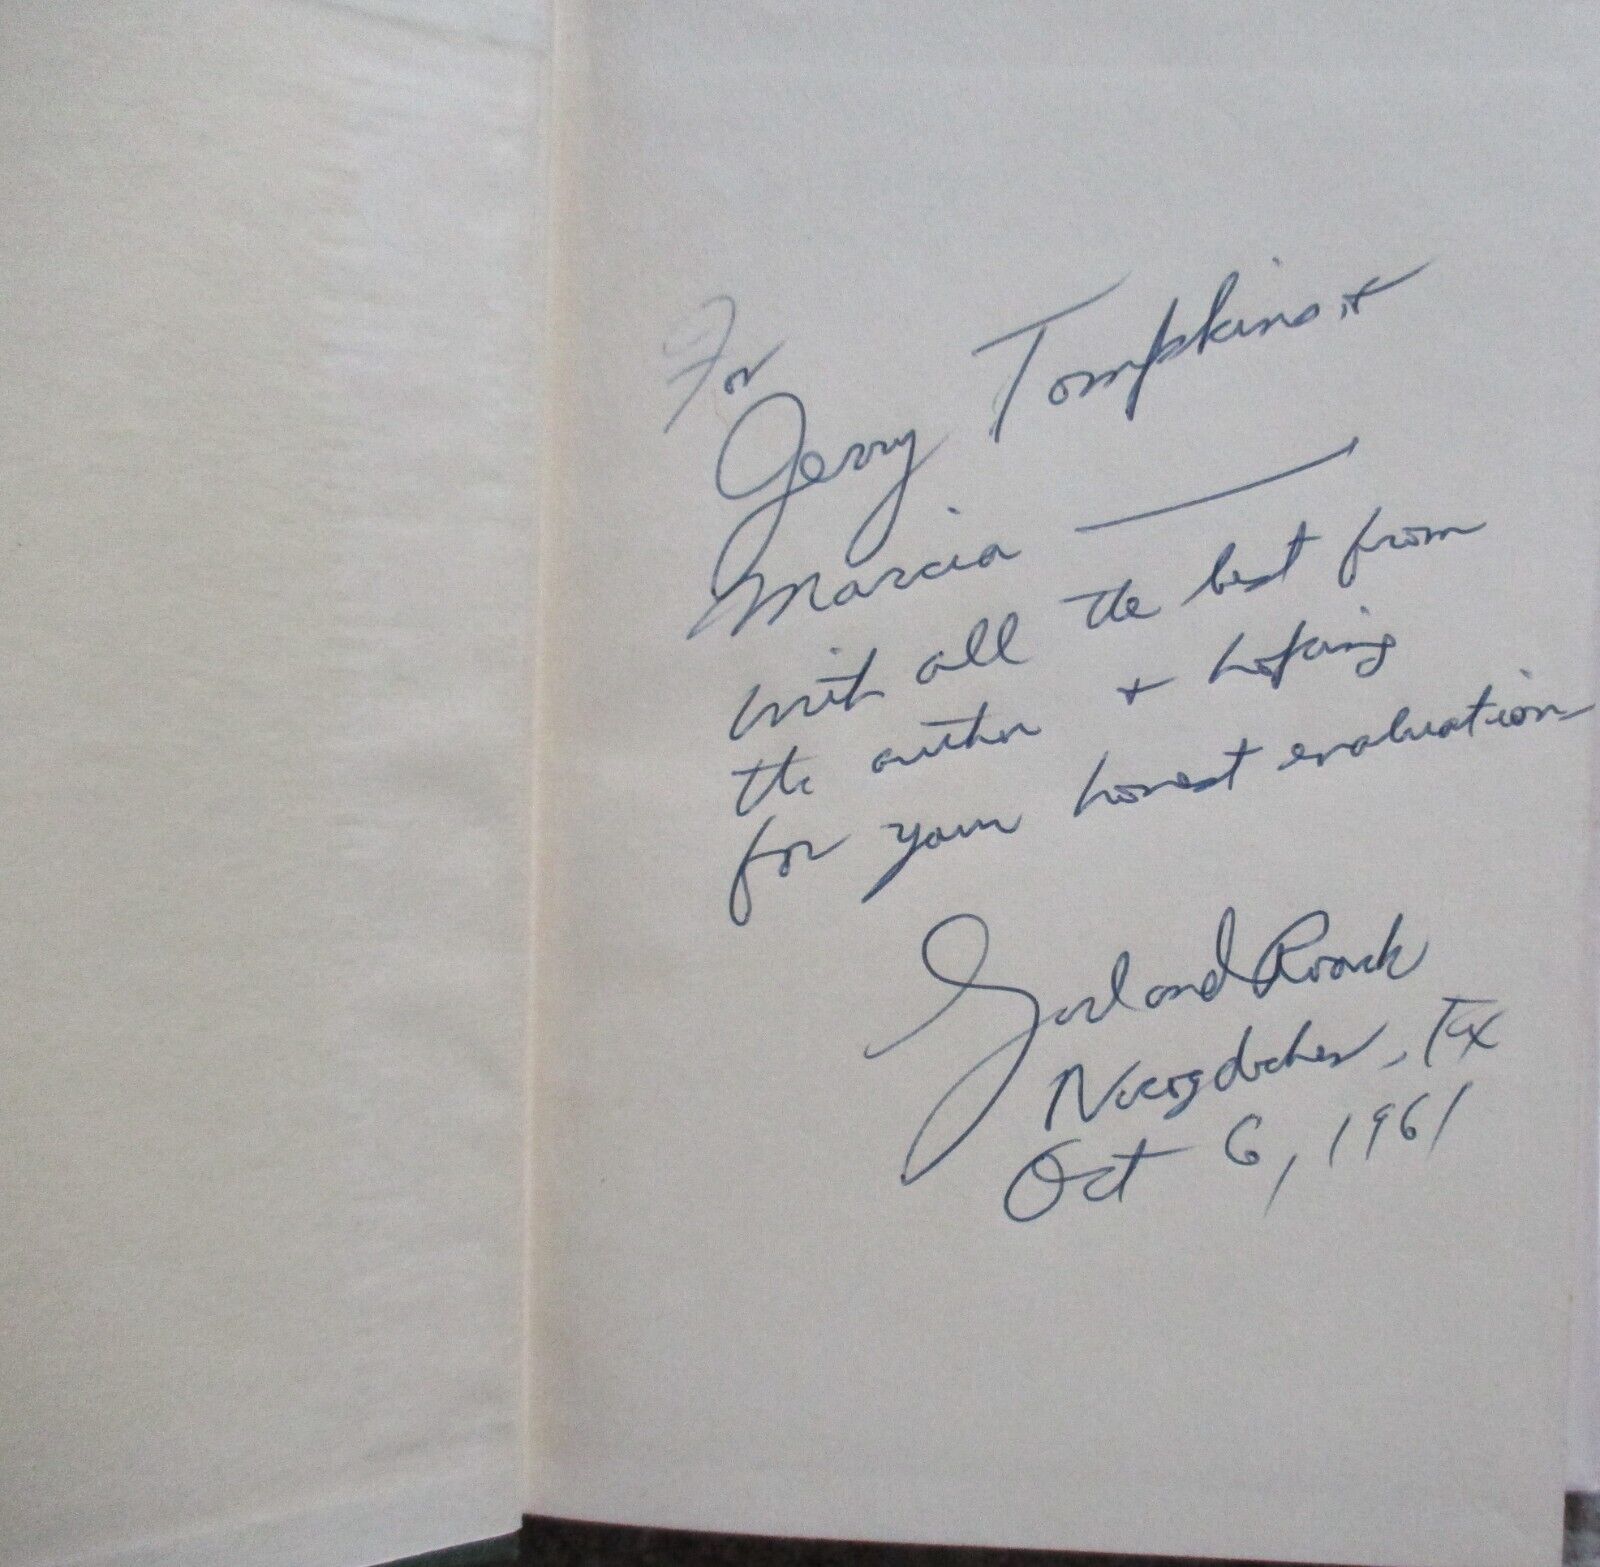 For
Jerry Tompkins +
Marcia —
with all the best from
the author + hoping
for your honest evaluation
Garland Roark
Nacogdoches, Tex
Oct 6, 1961